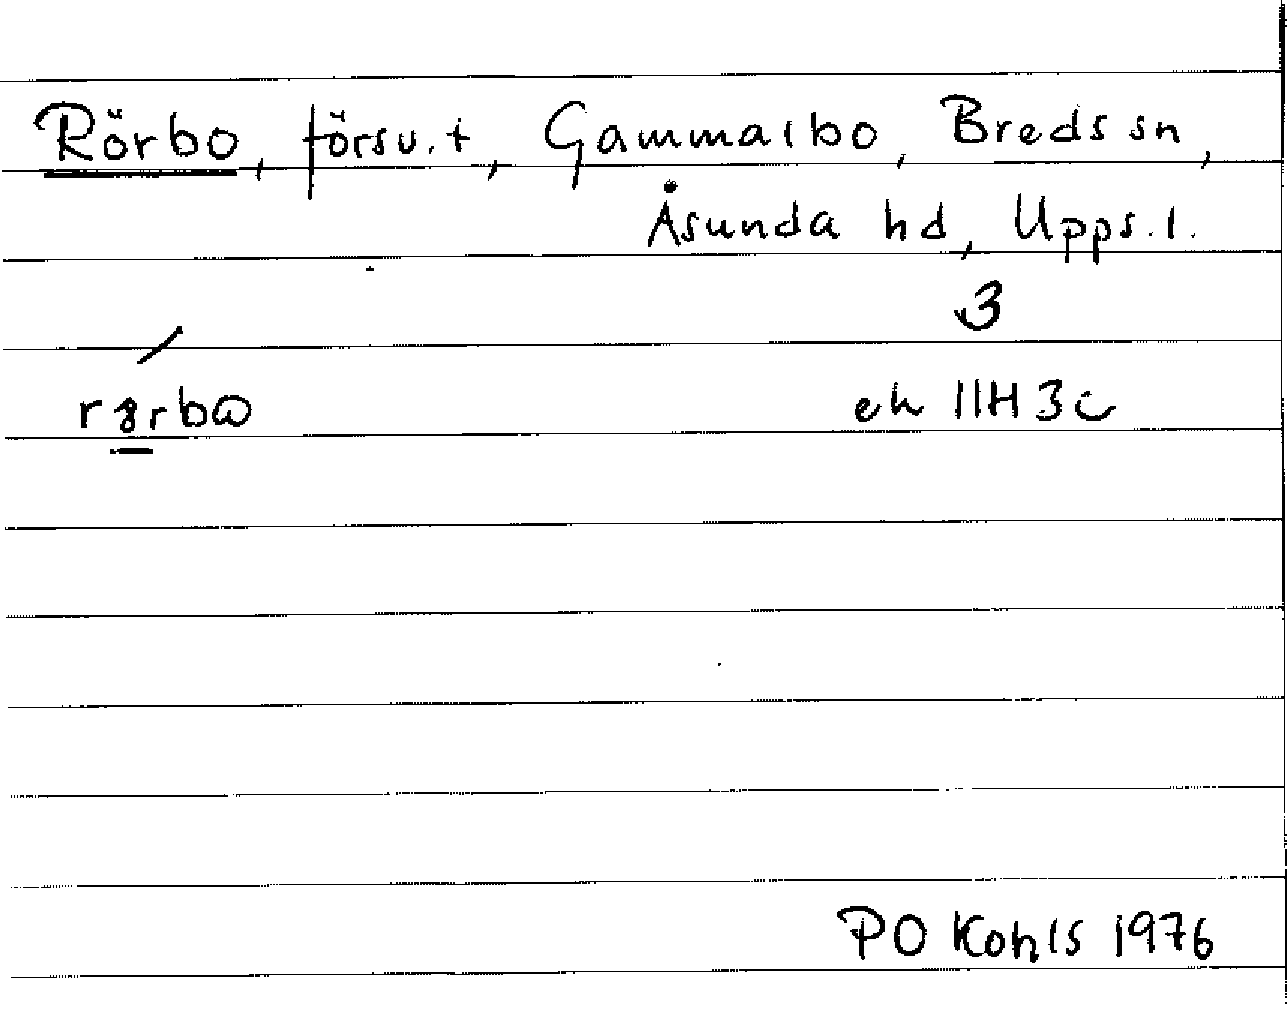 Rörbo, försv. t, Gammalbo, Breds sn,
Åsunda hd, Upps. l.
3
ek 11H 3c
PO Kohls 1976